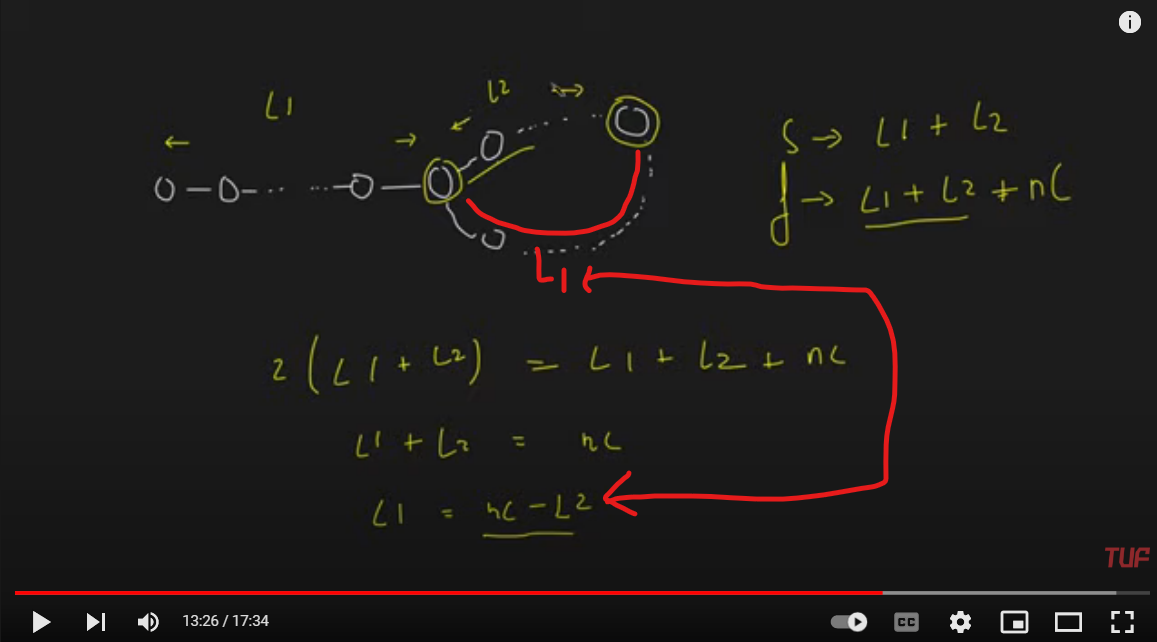 L1
L2
S → L1 + L2
f → L1 + L2 + nC
L1
2 (L1 + L2) = L1 + L2 + nC
L1 + L2 = nC
L1 = nC - L2
TUF
13:26 / 17:34
CC